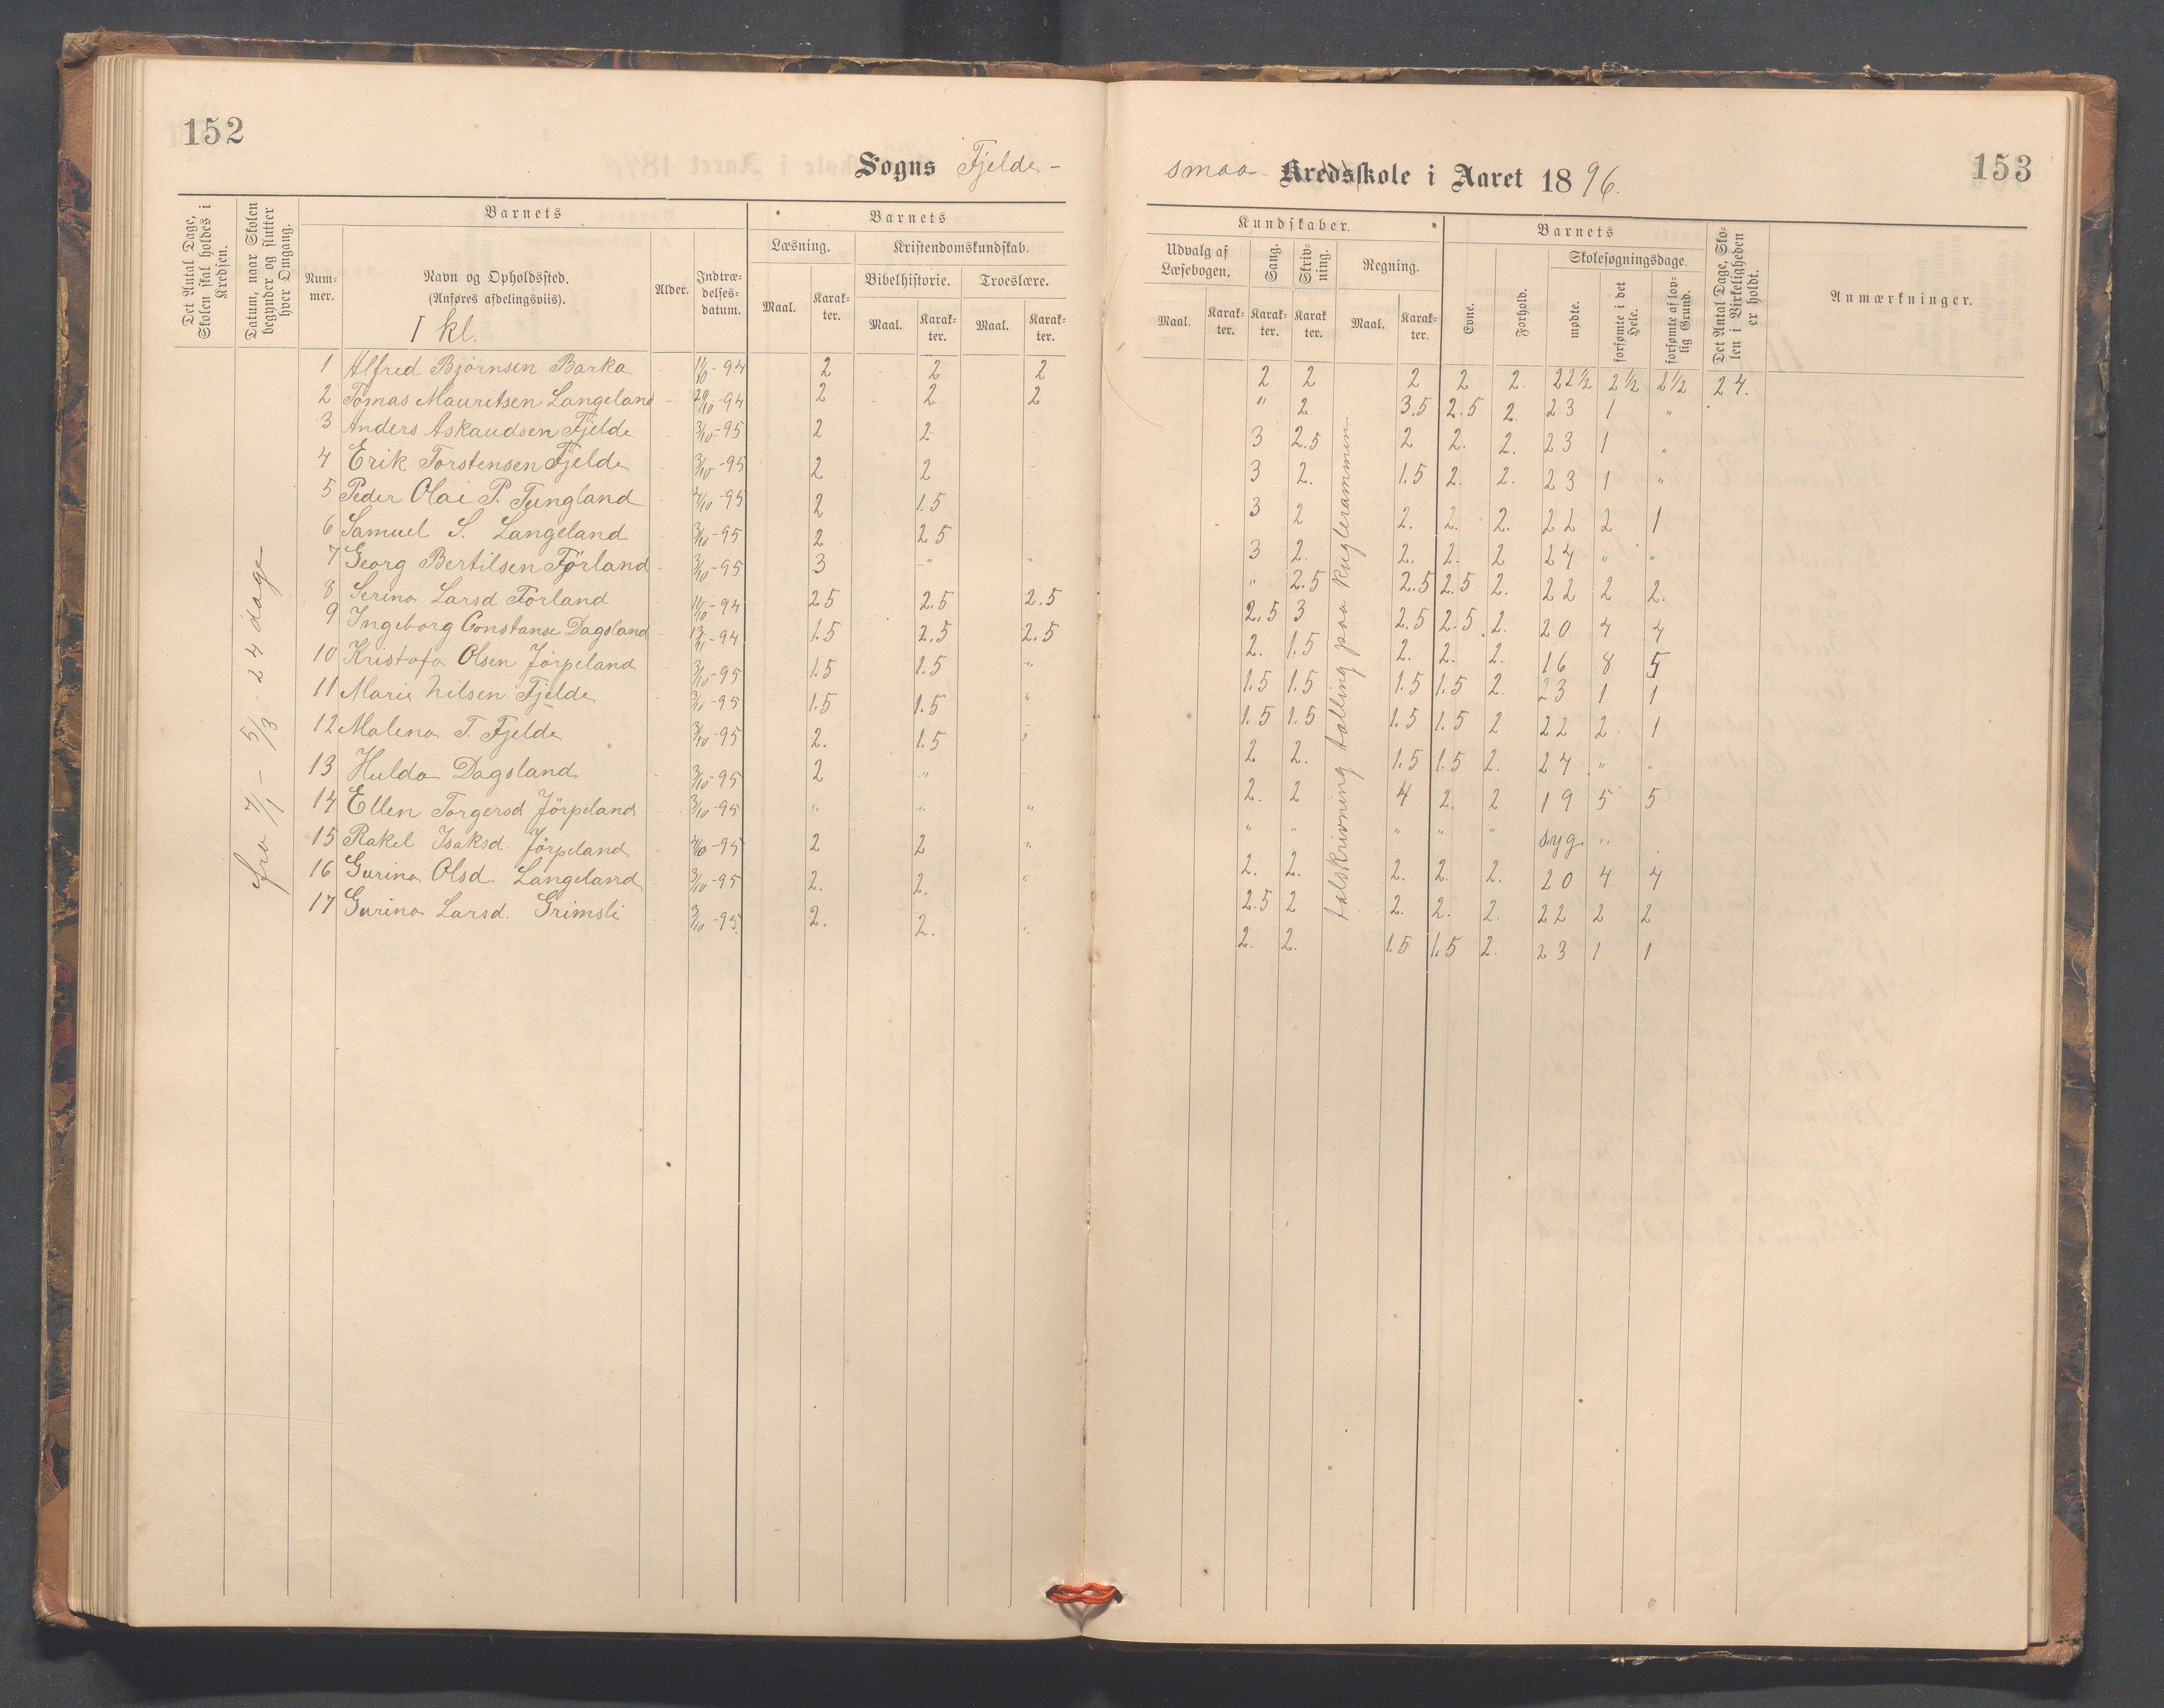 152
Sogns Fjelde-
smaa Kredsskole i Aaret 1896.
153
Det Antal Dage, Skolen skal holdes i Kredsen.
Datum, naar Skolen begynder og slutter hver Omgang.
Barnets
Nummer.
Navn og Opholdssted.
(Anføres afdelingsviis).
I kl.
Alder.
Indtrædelses-datum.
Barnets
Læsning.
Maal. Karakter.
Kristendomskundskab.
Bibelhistorie. Troeslære.
Maal. Karakter. Maal. Karakter.
Kundskaber.
Udvalg af Læsebogen.
Maal. Karakter.
Sang. Karakter.
Skrivning. Karakter.
Regning.
Maal. Karakter.
Barnets
Evne. Forhold.
Skolesøgningsdage.
mødte. forsømte i det Hele. forsømte af lovlig Grund.
Det Antal Dage, Skolen i Virkeligheden er holdt.
Anmærkninger.
fra 7/1 - 5/3 - 24 dage
talskrivning tælling paa kuglerammen
1 Alfred Bjørnsen Barka 11/10-94 2 2 2 2 2 2 2 2. 22½ 2½ 2½ 24.
2 Mauritsen Langeland 29/10-94 2 2 2 " 2 3.5 2.5 2. 23 1 "
3 Anders Askaudsen Fjelde 3/10-95 2 2 3 2.5 2 2. 2. 23 1 "
4 Erik Torstensen Fjelde 3/10-95 2 2 3 2. 1.5 2. 2. 23 1 "
5 Peder Olai P. Tungland 4/10-95 2 1.5 3 2 2. 2. 2. 22 2 1
6 Samuel S. Langeland 3/10-95 2 2 5 3 2. 2. 2. 2 24 " "
7 Georg Bertilsen Førland 3/10-95 3 " " " 2.5 2.5 2.5 2. 22 2 2.
8 Serina Larsd Førland 11/10-94 25 2.5 2.5 2.5 3 2.5 2.5 2. 20 4 4
9 Ingeborg Constanse Dagsland 13/11-94 1.5 2.5 2.5 2. 1.5 2. 2. 2. 16 8 5
10 Kristofa Olsen Jørpeland 3/10-95 1.5 1.5 " 1.5 1.5 1.5 1.5 2. 23 1 1
11 Marie Nilsen Fjelde 3/10-95 1.5 1.5 " 1.5 1.5 1.5 1.5 2 22 2. 1
12 Malena T. Fjelde 3/10-95 2. 1.5 " 2 2. 1.5 1.5 2. 24 " "
13 Hulda Dagsland 3/10-95 2 " 2. 2 4 2. 2 19 5 5
14 Ellen Torgersd Jørpeland 3/10-95 " " " " " " " " syg "
15 Rakel Isaksd. Jørpeland 4/10-95 2 2 " 2. 2. 2. 2. 2. 20 4 4
16 Gurina Olsd. Langeland 3/10-95 2. 2. " 2.5 2 2. 2. 2. 22 2 2
17 Gurina Larsd. Grimsli 3/10-95. 2. 2. " 2. 2. 1.5 1.5 2. 23 1 1